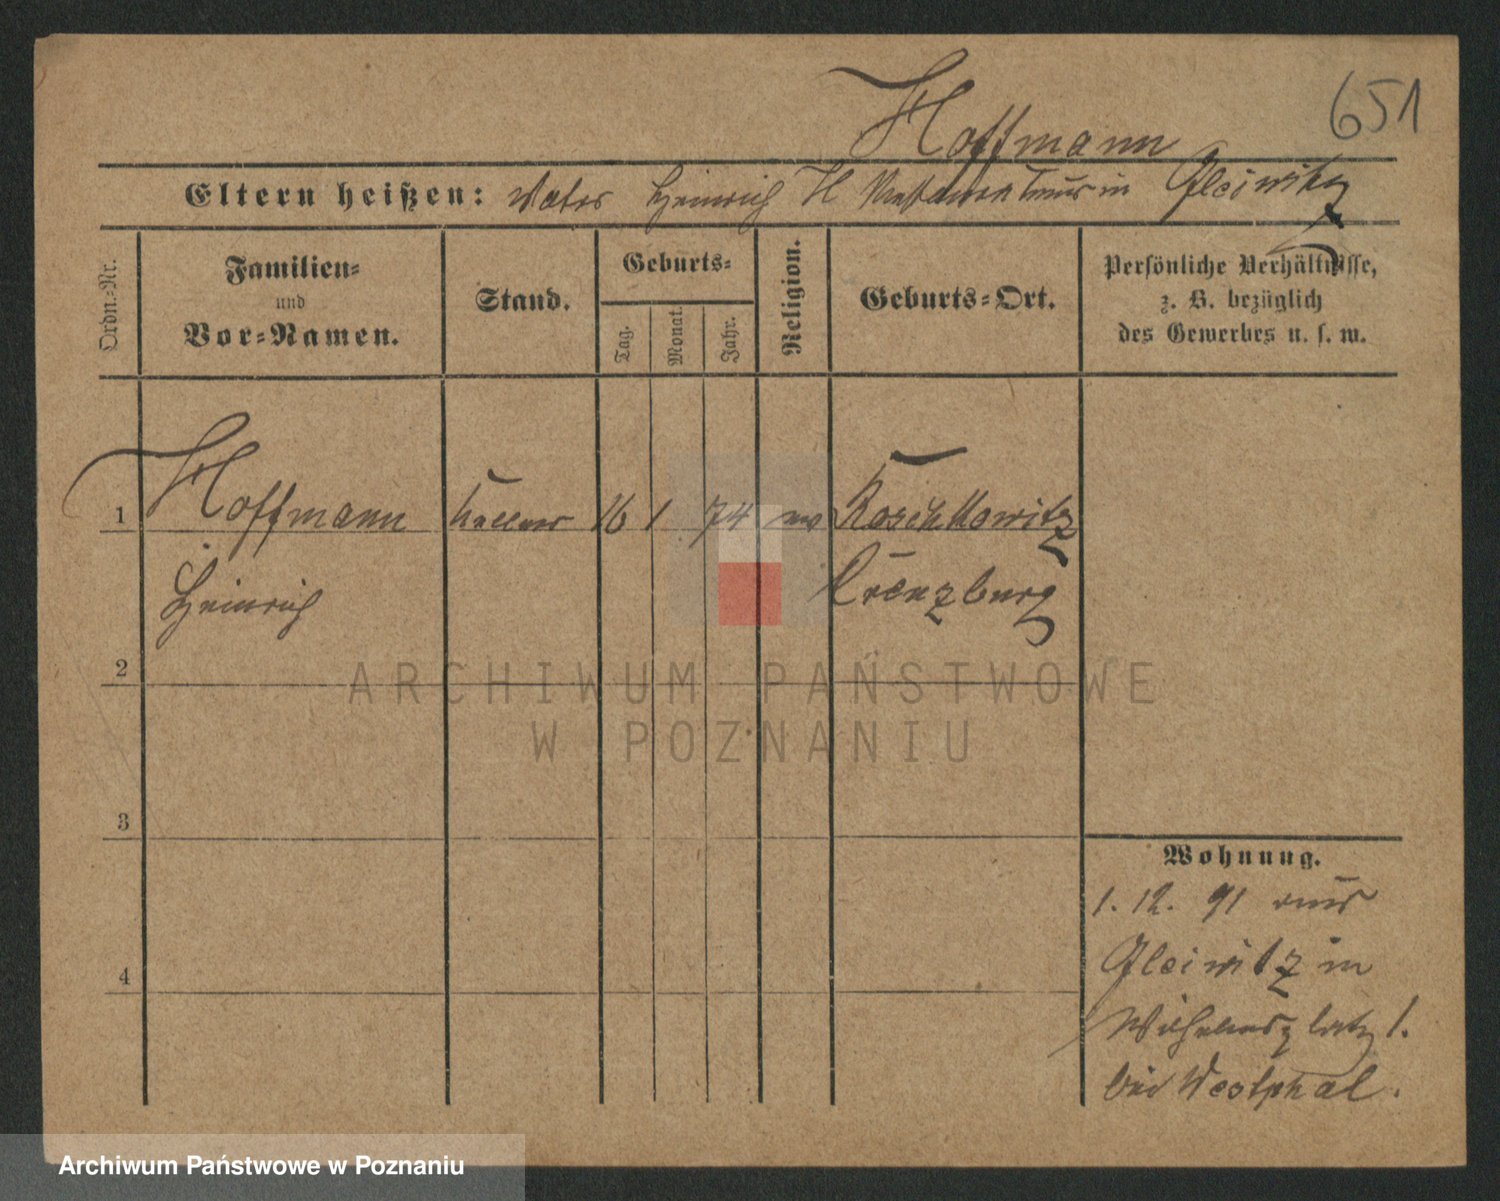 651
Hoffmann
Eltern heißen: Vater Heinrich H Restaurateur in Gleiwitz
Ordn.-Nr.
Familien-
und
Vor-Namen.
Stand.
Geburts-
Tag.
Monat.
Jahr.
Religion.
Geburts-Ort.
Persönliche Verhältnisse,
z. B. bezüglich
des Gewerbes u. s. w.
1 Hoffmann Kellner 16 1 74 ev Roschkowitz
Heinrich Creuzburg
2
3
4
Wohnung.
1. 12. 91 aus
Gleiwitz in
Wilhelmsplatz 1.
bei Westphal.
ARCHIWUM PAŃSTWOWE
W POZNANIU
Archiwum Państwowe w Poznaniu